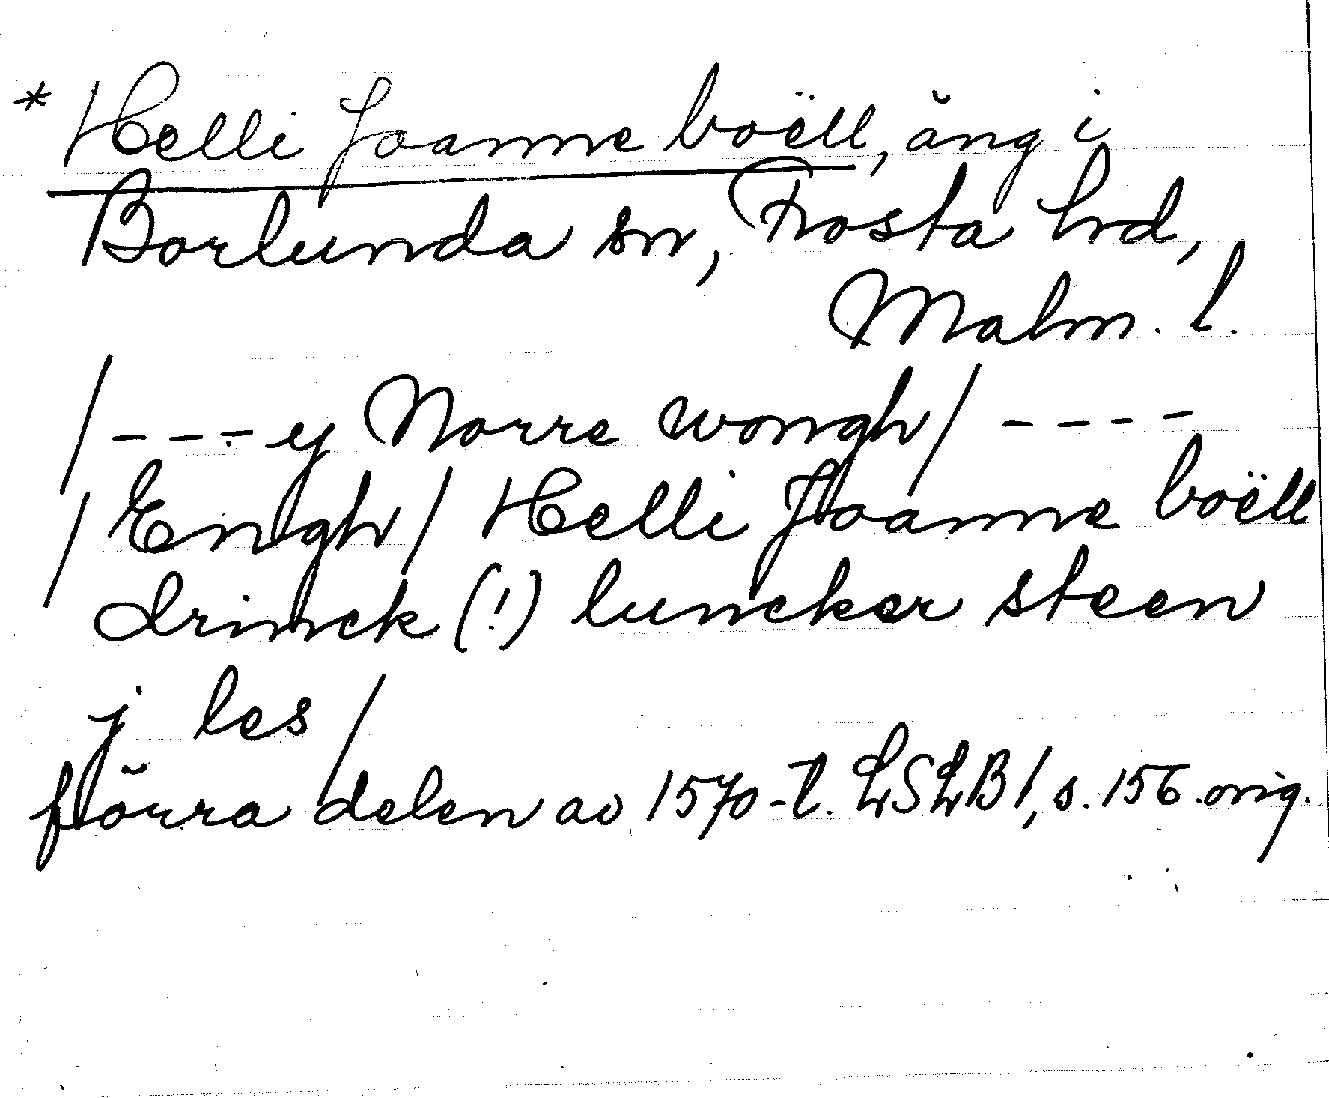 * Helli Joanne boëll, äng i
Borlunda sn, Frosta hrd,
Malm. l.
/---y Norre wongh/ ----
/Engh/ Helli Joanne boëll
drinck (!) luncker steen
j les/
förra delen av 1570-t. LSLB1, s. 156 orig.